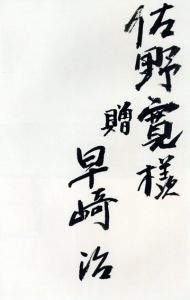 佐野寛様
贈
早崎治